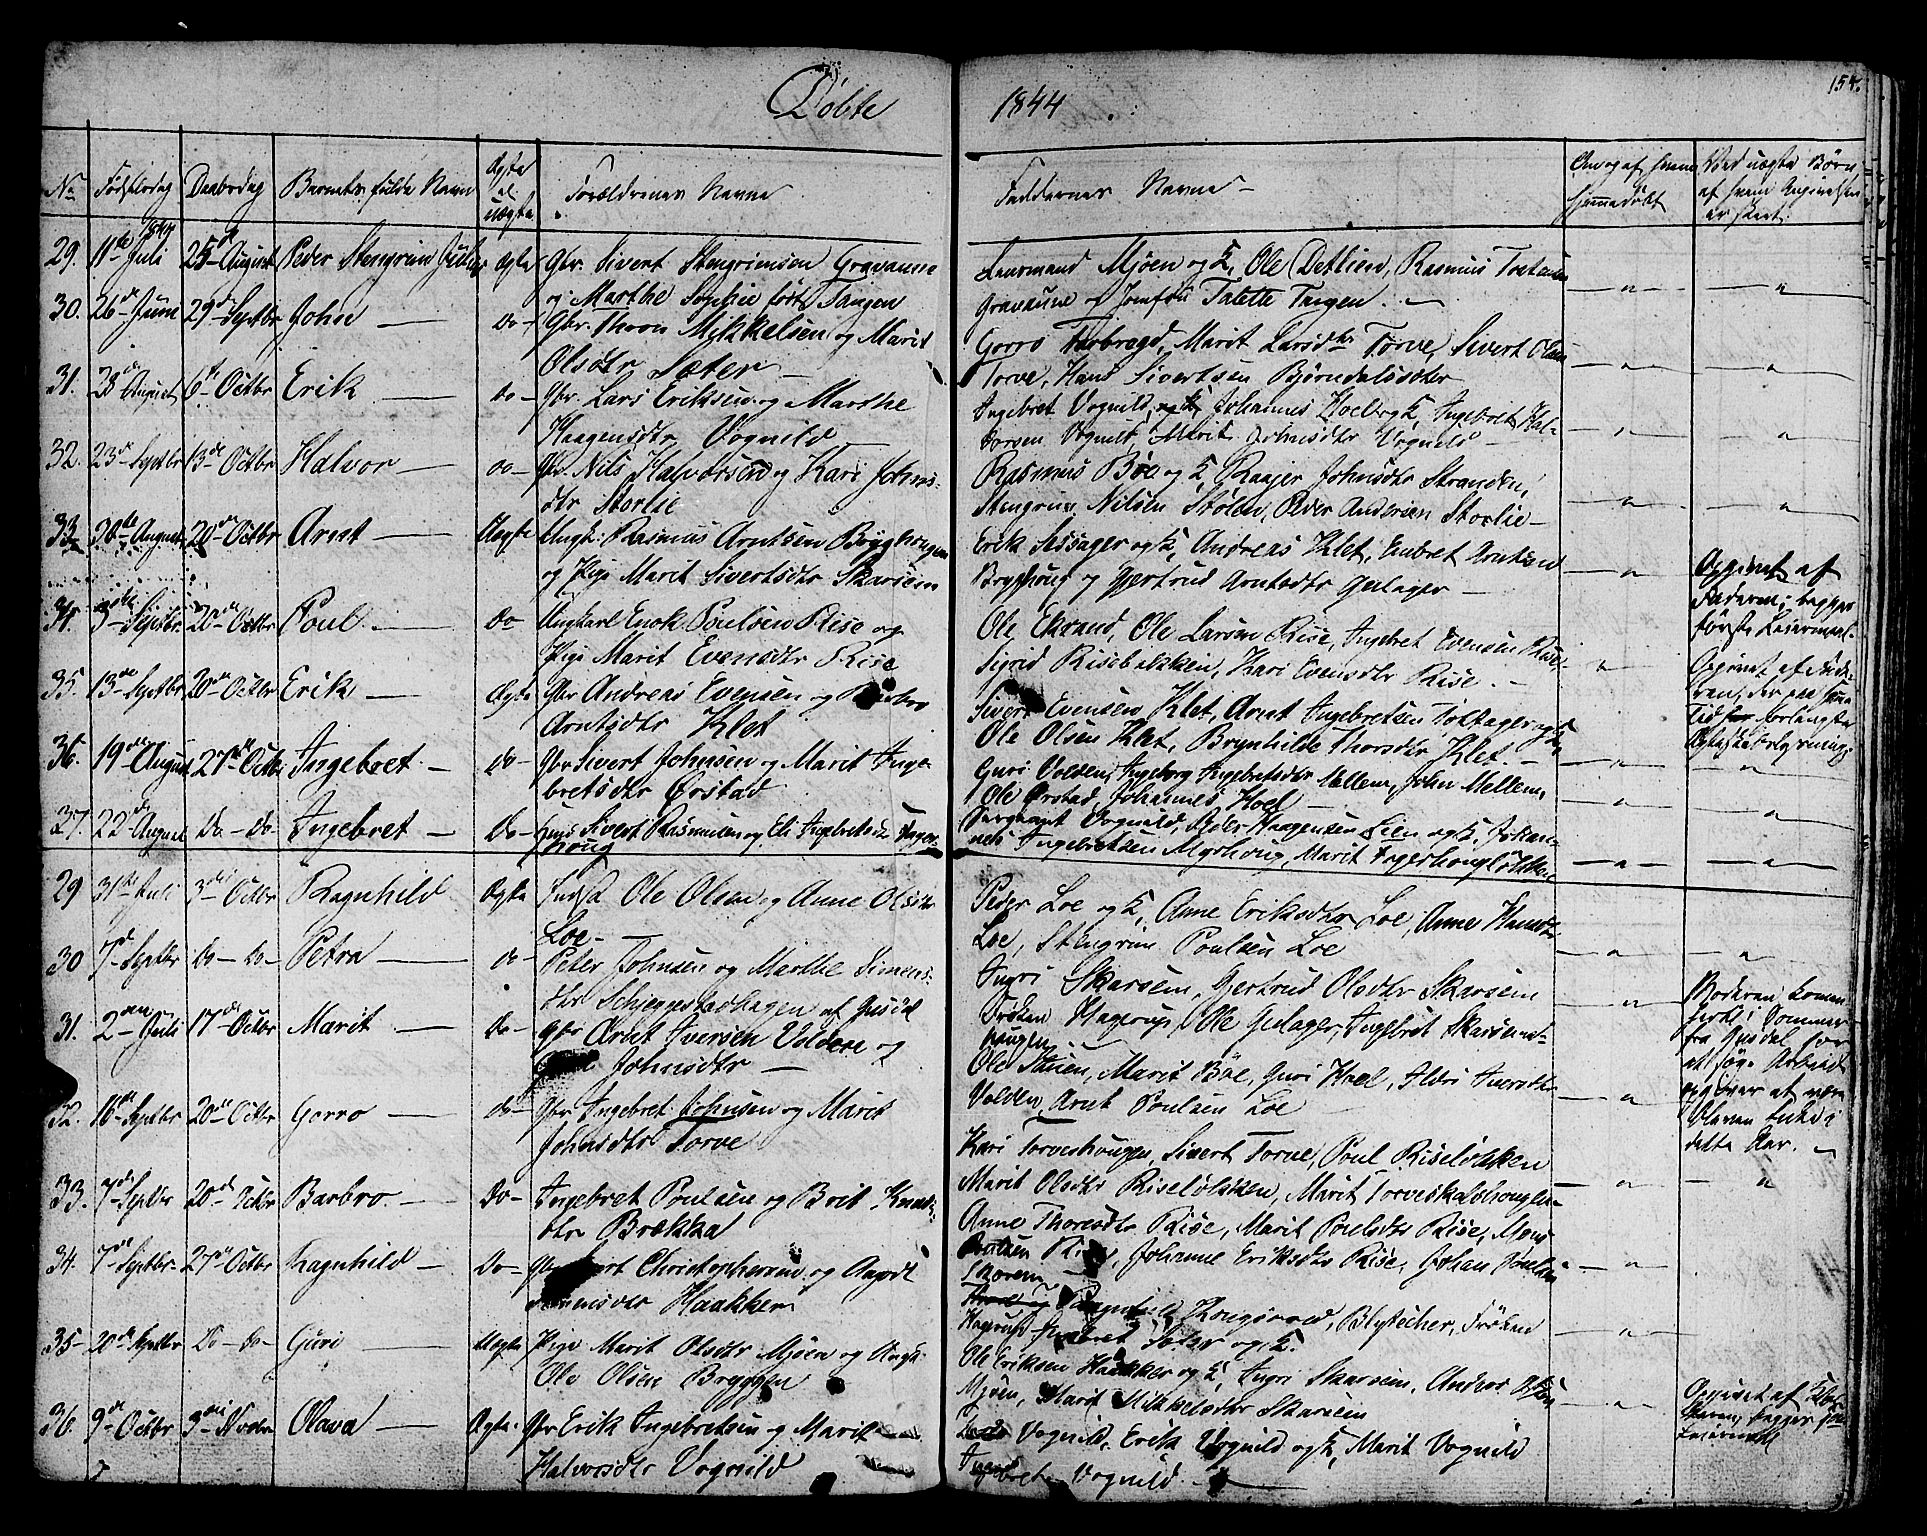 Døbte 1844
154.
No Fødselsdag Daabsdag Barnets fulde Navn Ægte el. uægte Forældrenes Navne
Faddernes Navne Om og af hvem hjemmedøbt Ved uægte Børn af hvem Angivelsen er skeet.
1844
29. 11te Juli 25de August Peder Stengrim ægte Gbr. Sivert Stengrimsen Gravaune
og Marthe Sophie født Tangen
Mjøen og K, Ole Detlien, Rasmus
Gravaune og Jomfru Talette Tangen. — " — "
30. 26de Juni 29de Septbr John — do — Gbr. Thore Mikkelsen og Marit
Olsdtr Sæter —
Gorro Torbregd, Marit Larsdtr Torve, Sivert Olsen
Torve, Hans Sivertsen Bjørndalssæter — " — "
31. 28de August 6te Octbr Erik — do — Gbr. Lars Eriksen og Marthe
Haagensdtr Vognild —
Ingebret Vognild, Johannes Hoel og K, Ingebret Hal-
vorsen Vognild, Marit Johnsdtr Vognild — — " — "
32. 23de Septbr 13de Octbr Halvor — do — Gbr Nils Halvorsen og Kari Johns-
dtr Storlie
Rasmus Bøe og K, Kaaje Johnsdtr Stranden,
Stengrim Nilsen Stølen, Peder Andersen Storlie — — " — "
33. 30te August 20de Octbr Arnt — Uægte Ungk: Rasmus Arntsen Brygghougen
og Pige Marit Sivertsdtr Skarsem
Erik Sessager og K, Andreas Klet, Embret Arntsen
Brygghoug og Gjertrud Arntsdtr Gulager — — " —
Opgivet af
Faderen; begges
første Leiermaal.
34. 3die Septbr. 20de Octbr Poul — do Ungkarl Enok Poulsen Rise og
Pige Marit Evensdtr Rise
Ole Ekrand, Ole Larsen Rise, Ingebret Evensen Rise,
Sigrid Risebakken, Kari Evensdtr Rise. — — " —
Opgivet af Fade-
ren, der paa samme
Tid har forlangt
Ægteskabslysning.
35. 13de Septbr 20de Octbr Erik — Ægte Gbr Andreas Evensen og Barbro
Arntsdtr Klet
Sivert Evensen Klet, Arnt Ingebretsen Toftager og K,
Ole Olsen Klet, Brynhilde Thorsdtr Klet. — — " — "
36. 19de August 27de Octbr Ingebret — do — Gbr Sivert Johnsen og Marit Inge-
bretsdtr Ørstad
Guri Volden, Ingeborg Ingebretsdtr Mellem, John Mellem,
Ole Ørstad, Johannes Hoel — — " — "
37. 22de August Do — Do — Ingebret — Do — Huus Sivert Rasmusen og Eli Ingebretsdtr
houg
Sergeant Vognild, Peder Haagensen Lien og K, Johan-
nes Ingebretsen Myrhoug, Marit Fagerhougløkken — " — "
29 31te Juli 3die Octbr Ragnhild Ægte Inds Ole Olsen og Anne Olsdtr
Loe —
Peder Loe og K, Anne Eriksdtr Loe, Anne Hansdtr
Loe, Stengrim Poulsen Loe — " — "
30 7de Septbr Do — Do — Petra — do — Peter Johnsen og Marthe Simens-
dtr Schjeggestadhagen af Gusdal
Ingri Skarsem, Gertrud Olsdtr Skarsem
Frøken Hagerup, Ole Gulager, Ingebret Skarsem-
hougen — " —
Moderen kommen
hertil i Sommer
fra Gusdal for
at søge Arbeid
og siger at være
bleven viet i
dette Aar. —
31. 2den Juli 17de Octbr Marit — do — Gbr Arnt Iversen Voldene og
Johnsdtr —
Ole Stuen, Marit Bøe, Guri Hoel, Ildri Iversdtr
Volden, Arnt Poulsen Loe — " —
32. 16de Septbr 20de Octbr Gorro — do — Gbr Ingebret Johnsen og Marit
Johnsdtr Torve
Kari Torveshougen, Sivert Torve, Poul Riseløkken
Marit Olsdtr Riseløkken, Marit — " — "
33. 7de Septbr 20de Octbr Barbro. — Do — Ingebret Poulsen og Brit Knuds-
dtr Brækka
Anne Thoresdtr Rise, Marit Poulsdtr Rise, Mons
Poulsen Rise, Johanne Eriksdtr Rise, Johan Poulsen
Skorem — " —
34. 7de Septbr. 27de Octbr Ragnhild — Do — Gbr Christophersen og Ragnhild
Haakker
Kongsvold, Blytecher, Frøken
Hagerup Sæter og K. — " —
35 — 20de Septbr Do — Do — Guri — Uægte Pige Marit Olsdtr Mjøen og Ungk.
Ole Olsen Bryggen
Ole Eriksen Haakker og K, Ingri Skarsem, Anders Olsen
Mjøen, Marit Mikkelsdtr Skarsem — " —
Opgivet af
begges
Leiermaal
36. 9de Octbr 3die Novbr Olava — Ægte Gbr Erik Ingebretsen og Marit
Halvorsdtr Vognild
Vognild, Erik Vognild og K, Marit Vognild
Ingebret Vognild. —